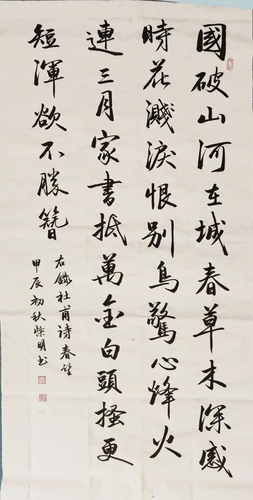 國破山河在城春草木深感
時花濺淚恨別鳥驚心烽火
連三月家書抵萬金白頭搔更
短渾欲不勝簪
右錄杜甫詩春望
甲辰初秋柴明书